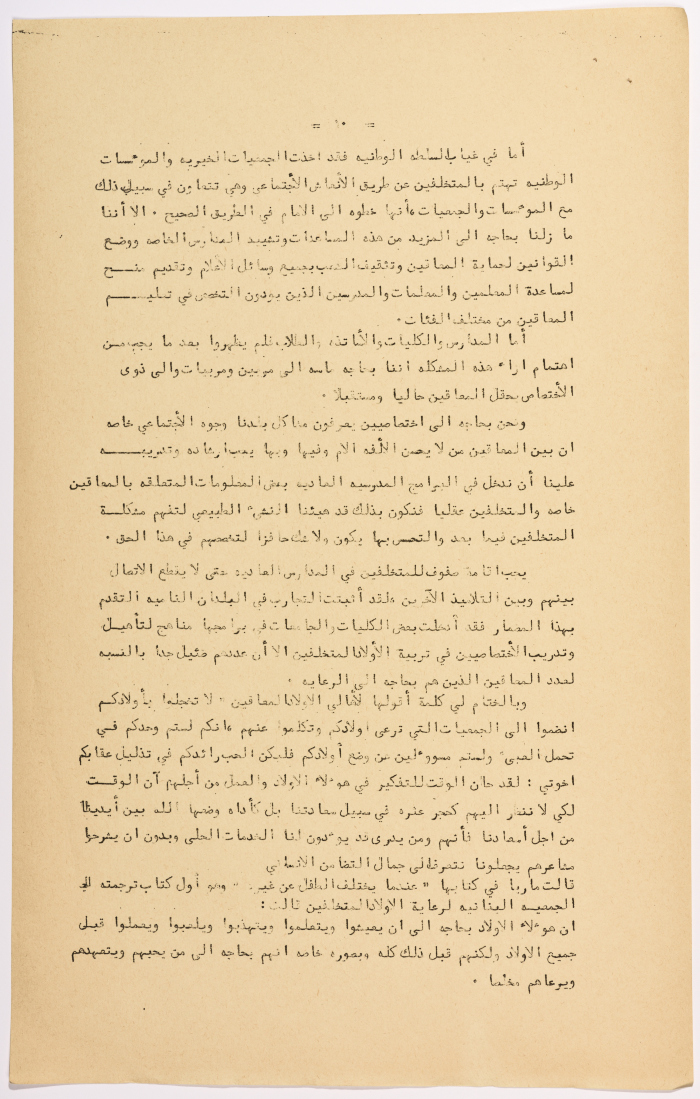 = ١٠ =
أما في غياب السلطه الوطنيه فقد اخذت الجمعيات الخيريه والموءسسات
الوطنيه تهتم بالمتخلفين عن طريق الأنعاش الأجتماعي وهي تتعاون في سبيل ذلك
مع الموءسسات والجمعيات، أنها خطوه الى الامام في الطريق الصحيح . الا أننا
ما زلنا بحاجه الى المزيد من هذه المساعدات وتشييد المدارس الخاصه ووضع
القوانين لحماية المعاقين وتثقيف الشعب بجميع وسائل الأعلام وتقديم منح
لمساعدة المعلمين والمعلمات والمدرسين الذين يودون التخصص في تعليم
المعاقين من مختلف الفئات .
أما المدارس والكليات والأساتذه والطلاب فلم يظهروا بعد ما يجب من
اهتمام ازاء هذه المشكله اننا بحاجه ماسه الى مربين ومربيات والى ذوى
الأختصاص بحقل المعاقين حاليا ومستقبلا .
ونحن بحاجه الى اختصاصيين يعرفون مشاكل بلدنا وجوه الأجتماعي خاصه
ان بين المعاقين من لا يحسن الألفه الام وفيها وبها يجب ارشاده وتدريبه
علينا أن ندخل في البرامج المدرسيه العاديه بعض المعلومات المتعلقه بالمعاقين
خاصه والمتخلفين عقليا فنكون بذلك قد هيئنا النشء الطبيعي لتفهم مشكلة
المتخلفين فيما بعد والتحسس بها يكون ولا شك حافزا لتخصصهم في هذا الحقل .
يجب اقامة صفوف للمتخلفين في المدارس العاديه حتى لا ينقطع الاتصال
بينهم وبين التلاميذ الآخرين ولقد أثبتت التجارب في البلدان الناميه التقدم
بهذا المضمار فقد أدخلت بعض الكليات والجامعات في برامجها مناهج لتأهيل
وتدريب الأختصاصيين في تربية الأولاد المتخلفين الا أن عددهم ضئيل جدا بالنسبه
لعدد المعاقين الذين هم بحاجه الى الرعايه .
وبالختام لي كلمة أقولها لأهالي الاولاد المعاقين " لا تخجلوا بأولادكم
انضموا الى الجمعيات التي ترعى اولادكم وتكلموا عنهم فانكم لستم وحدكم في
تحمل العبىء ولستم مسوولين عن وضع أولادكم فليكن الحب رائدكم في تذليل عقابكم
اخوتي : لقد حان الوقت للتفكير في هوءلاء الاولاد والعمل من أجلهم آن الوقت
لكي لا ننظر اليهم كحجر عثره في سبيل سعادتنا بل كأداه وضعها الله بين أيدينا
من اجل أسعادنا فأنهم ومن يدرى قد يوءدون لنا الخدمات الجلى وبدون ان يشرحوا
مشاعرهم يجعلونا نتعرف الى جمال التضامن الأنساني
قالت ماريا في كتابها " عندما يختلف الطفل عن غيره " وهو أول كتاب ترجمته الى
الجمعيه اللبنانيه لرعاية الاولاد المتخلفين قالت :
ان هوءلاء الاولاد بحاجه الى ان يعيشوا ويتعلموا ويتهذبوا ويلعبوا ويعملوا قبل
جميع الاولاد ولكنهم قبل ذلك كله وبصوره خاصه انهم بحاجه الى من يحبهم ويتعهدهم
ويرعاهم مخلصا .